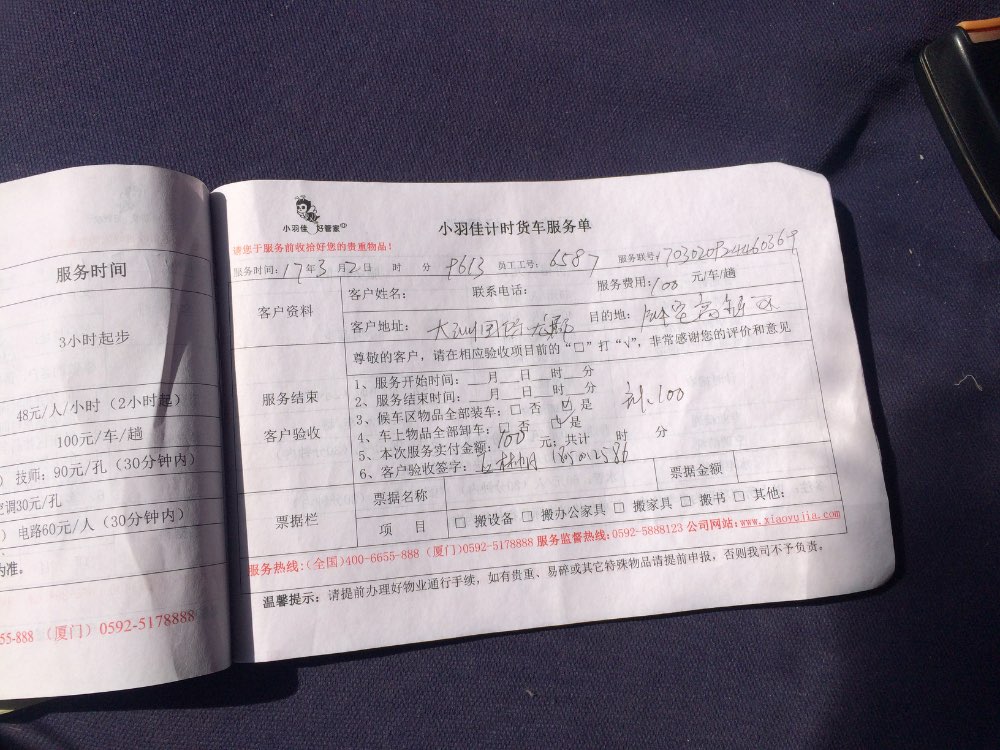 服务时间
3小时起步
48元/人/小时（2小时起）
100元/车/趟
）技师：90元/孔（30分钟内）
空调30元/孔
）电路60元/人（30分钟内）
为准。
55-888（厦门）0592-5178888
小羽佳 好管家
小羽佳计时货车服务单
请您于服务前收拾好您的贵重物品！
服务时间：17年3月2日 时 分 9613 员工工号：6587 服务联号：
客户资料
客户姓名： 联系电话： 服务费用：100 元/车/趟
客户地址： 目的地：
尊敬的客户，请在相应验收项目前的“□”打“√”，非常感谢您的评价和意见
服务结束
客户验收
1、服务开始时间：__月__日__时__分
2、服务结束时间：__月__日__时__分
3、候车区物品全部装车：□ 否 ☑ 是
4、车上物品全部卸车：□ 否 ☑ 是
5、本次服务实付金额：100 元；共计 时 分
6、客户验收签字：
票据栏
票据名称 票据金额
项 目 □ 搬设备 □ 搬办公家具 □ 搬家具 □ 搬书 □ 其他：
服务热线：（全国）400-6655-888（厦门）0592-5178888 服务监督热线：0592-5888123 公司网站：www.xiaoyujia.com
温馨提示：请提前办理好物业通行手续，如有贵重、易碎或其它特殊物品请提前申报，否则我司不予负责。